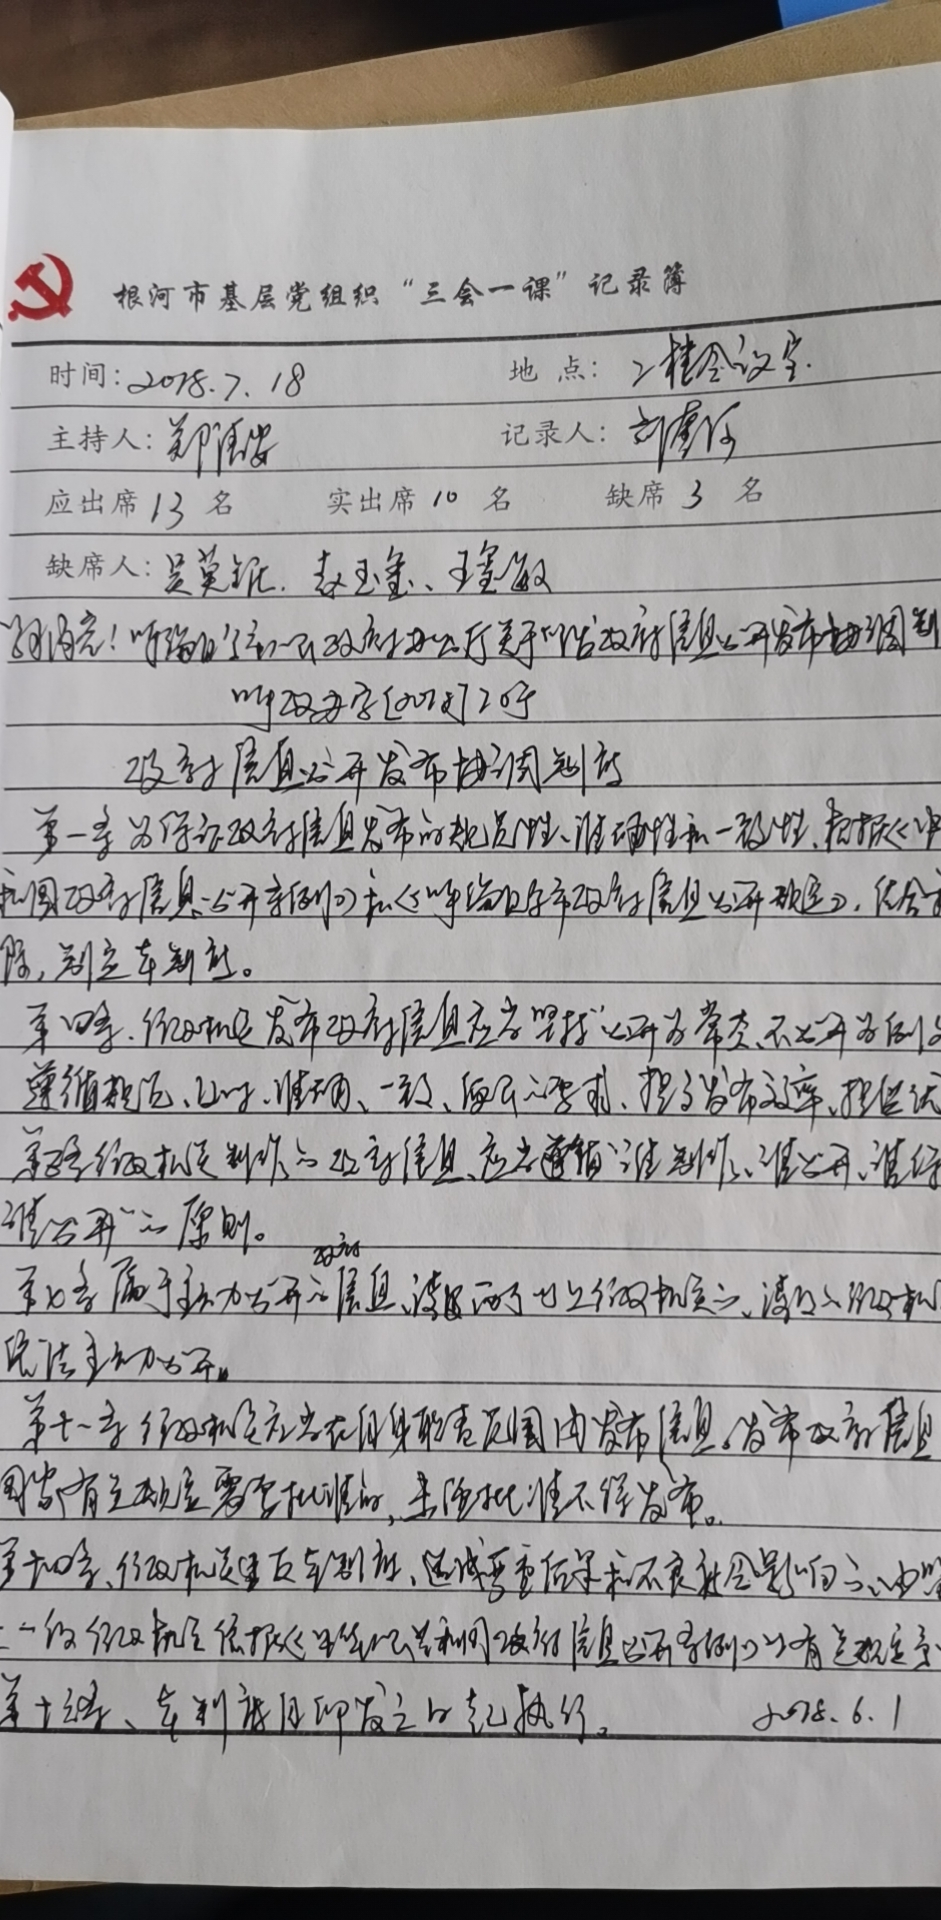 根河市基层党组织“三会一课”记录簿
时间：2018.7.18 地点：二楼会议室.
主持人：郑 记录人：
应出席13名 实出席10名 缺席3名
缺席人：吴英 、赵玉金、王金敏
政府办公厅关于 政府信息公开发布协调制
呼政办字[2018]20号
政府信息公开发布协调制度
第一条 为保证政府信息发布的规范性、准确性和一致性，根据《中
和国政府信息公开条例》和《呼伦贝尔市政府信息公开规定》，结合
际，制定本制度。
第四条、行政机关发布政府信息应当坚持“公开为常态、不公开为例外
遵循规范、及时、准确、一致、便民的要求、提高发布效率、提供优
第五条行政机关制作的政府信息、应当遵循“谁制作、谁公开、谁保
谁公开”的原则。
第七条属于主动公开的政府信息、涉及两个以上行政机关的、涉及的行政机
依法主动公开。
第十一条 行政机关应当在自身职责范围内发布信息。发布政府信息
国家有关规定需要批准的，未经批准不得发布。
第十四条、行政机关违反本制度、造成严重后果和不良社会影响的、由
上一级行政机关依据《中华人民共和国政府信息公开条例》以有关规定
本制度自印发之日起执行。 2018.6.1